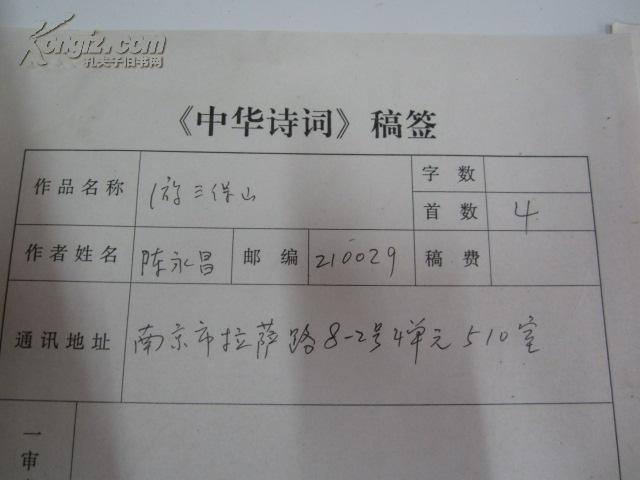 Kongfz.com
孔夫子旧书网
《中华诗词》稿签
作品名称 游三保山 字数
首数 4
作者姓名 陈永昌 邮编 210029 稿费
通讯地址 南京市拉萨路8-2号4单元510室
一
审